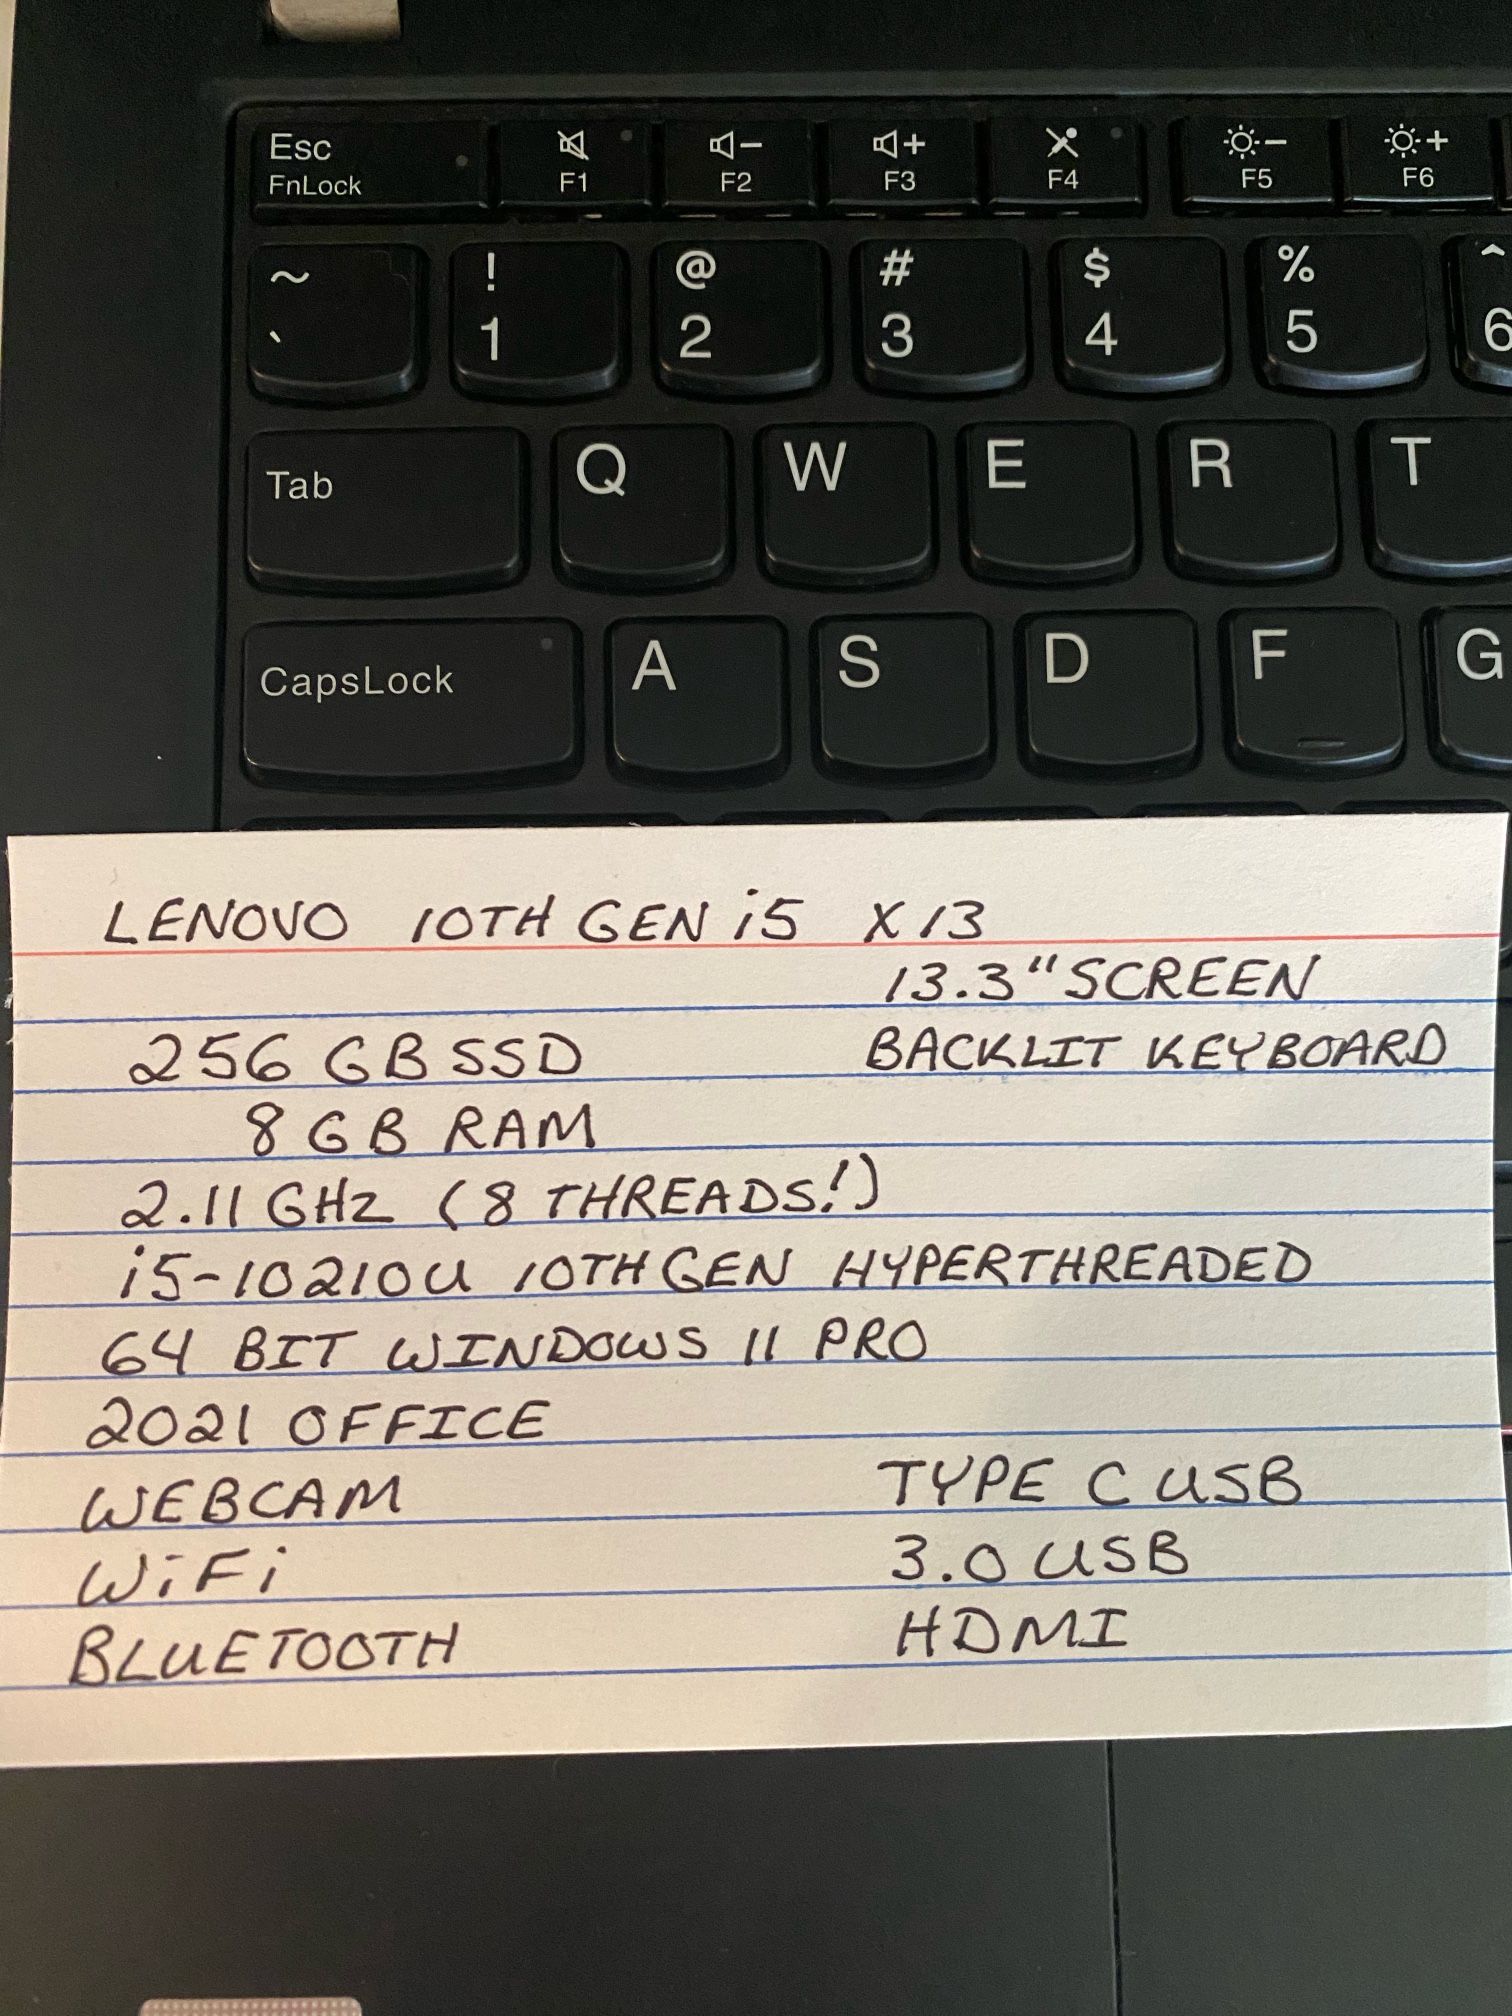 Esc
FnLock
F1
F2
F3
F4
F5
F6
~ ! @ # $ % ^
` 1 2 3 4 5 6
Tab Q W E R T
CapsLock A S D F G
LENOVO 10TH GEN i5 X13
13.3" SCREEN
256 GB SSD BACKLIT KEYBOARD
8 GB RAM
2.11 GHz (8 THREADS!)
i5-10210U 10TH GEN HYPERTHREADED
64 BIT WINDOWS 11 PRO
2021 OFFICE
WEBCAM TYPE C USB
WiFi 3.0 USB
BLUETOOTH HDMI